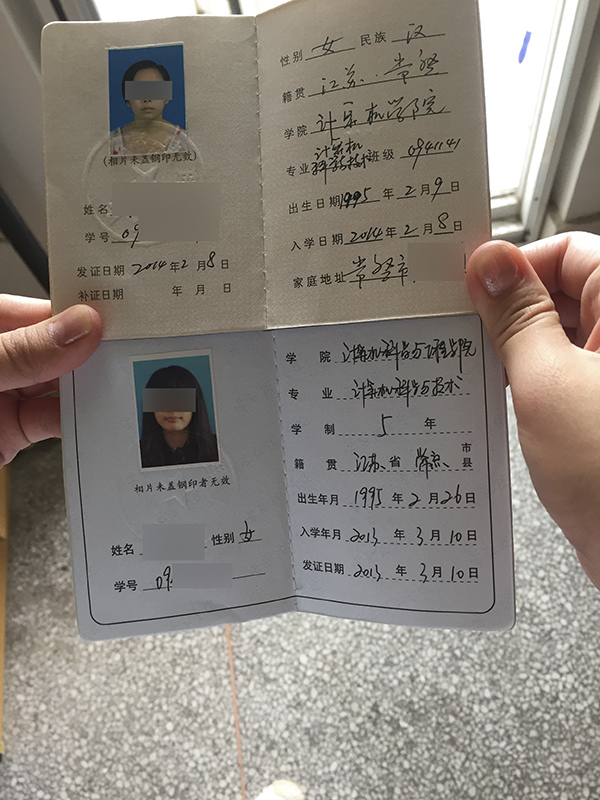 (相片未盖钢印无效)
姓名
学号 09
发证日期 2014年2月8日
补证日期 年 月 日
性别 女 民族 汉
籍贯 江苏、常熟
学院 计算机学院
专业 计算机科学与技术 班级 0941141
出生日期 1995年2月9日
入学日期 2014年2月8日
家庭地址 常熟市
相片未盖钢印者无效
姓名 性别 女
学号 09
学 院 计算机科学与工程学院
专 业 计算机科学与技术
学 制 5 年
籍 贯 江苏 省 市县
出生年月 1995年2月26日
入学年月 2013年3月10日
发证日期 2013年3月10日